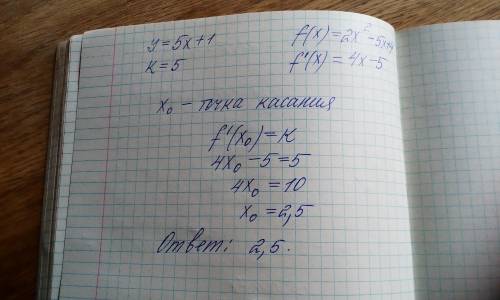 y = 5x + 1
k = 5
f(x) = 2x² - 5x +
f'(x) = 4x - 5
x₀ - точка касания
f'(x₀) = k
4x₀ - 5 = 5
4x₀ = 10
x₀ = 2,5
Ответ: 2,5.